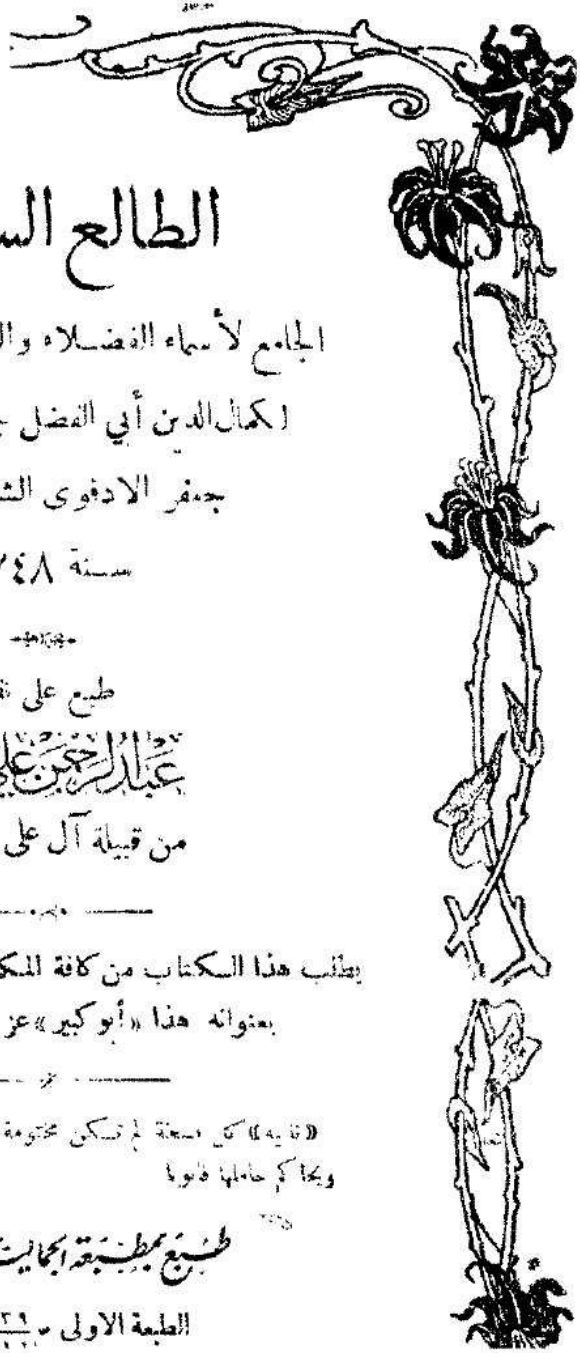 الطالع الس
الجامع لأسماء الفضلاء وال
لكمال الدين أبي الفضل ج
جعفر الادفوى الش
سنة ٧٤٨
طبع على نف
عبد الرحمن علي
من قبيلة آل على
يطلب هذا الكتاب من كافة المك
بعنوانه هذا «أبو كبير» عز
كل نسخة لم تكن مختومة
ويحاكم حاملها قانونا
طبع بمطبعة الجمالية
الطبعة الاولى